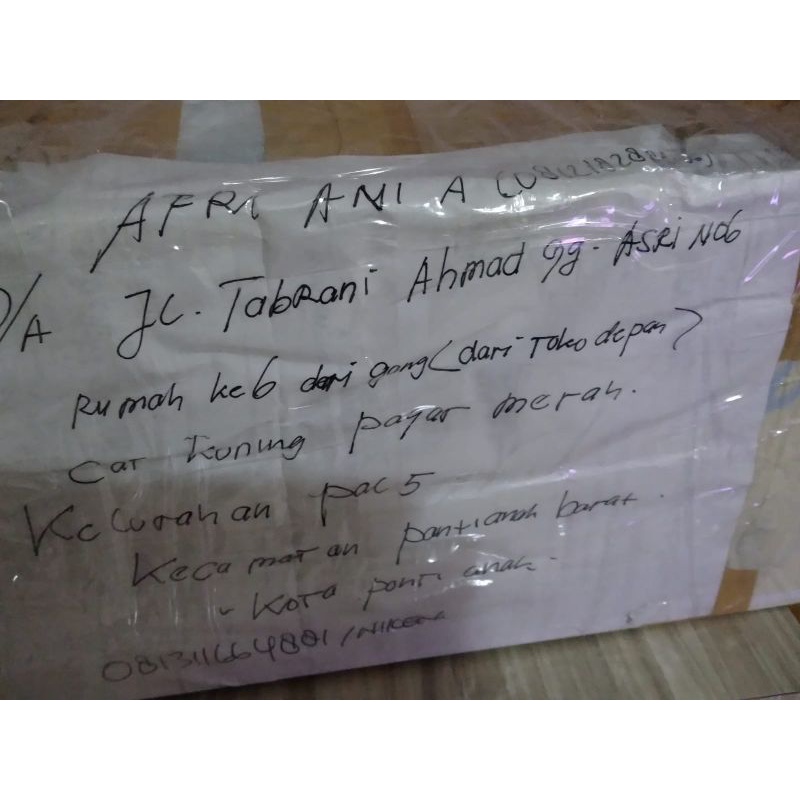 AFRI ANI A
D/A JL. Tabrani Ahmad gg. ASRI NO6
Rumah ke6 dari gang (dari Toko depan)
Cat kuning pagar merah.
Kelurahan pal 5
Kecamatan pontianak barat.
- Kota ponti anak.
081311664881 /NIKEN